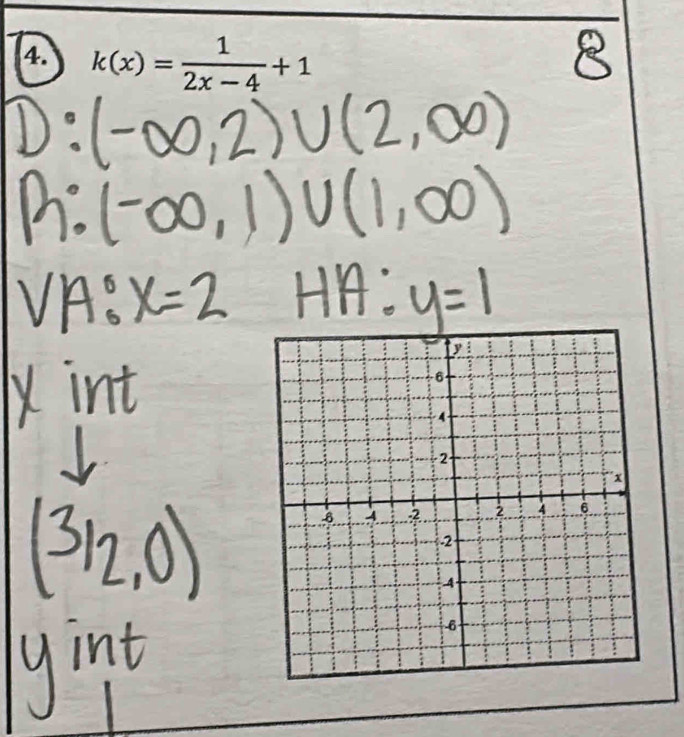 4. k(x) = 1/(2x − 4) + 1
8
D: (-∞, 2) ∪ (2, ∞)
R: (-∞, 1) ∪ (1, ∞)
VA: x = 2 HA: y = 1
x int
↓
(3/2, 0)
y int
y
6
4
2
x
-6 -4 -2 2 4 6
-2
-4
-6